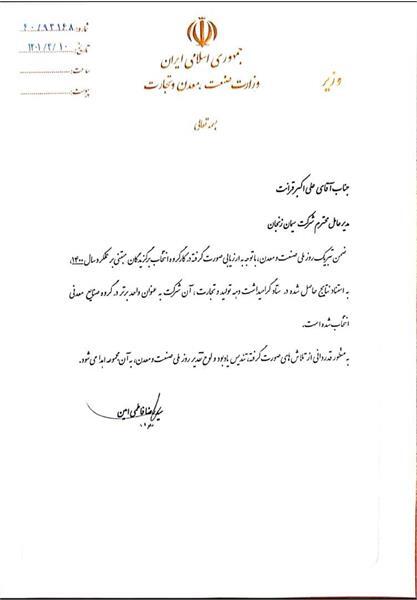 شماره: ۶۰/۹۳۱۴۸
تاریخ: ۱۴۰۱/۴/۱۰
ساعت:
پیوست:
جمهوری اسلامی ایران
وزارت صنعت، معدن و تجارت
وزیر
بسمه تعالی
جناب آقای علی اکبر قرائت
مدیرعامل محترم شرکت سیمان زنجان
ضمن تبریک روز ملی صنعت و معدن، با توجه به ارزیابی صورت گرفته در کارگروه انتخاب برگزیدگان مبتنی بر عملکرد سال ۱۴۰۰،
به استناد نتایج حاصل شده در ستاد گرامیداشت دهه تولید و تجارت، آن شرکت به عنوان واحد برتر در گروه صنایع معدنی
انتخاب شده است.
به منظور قدردانی از تلاش های صورت گرفته، تندیس یادبود و لوح تقدیر روز ملی صنعت و معدن، به آن مجموعه اهدا می شود.
سیدرضا فاطمی امین